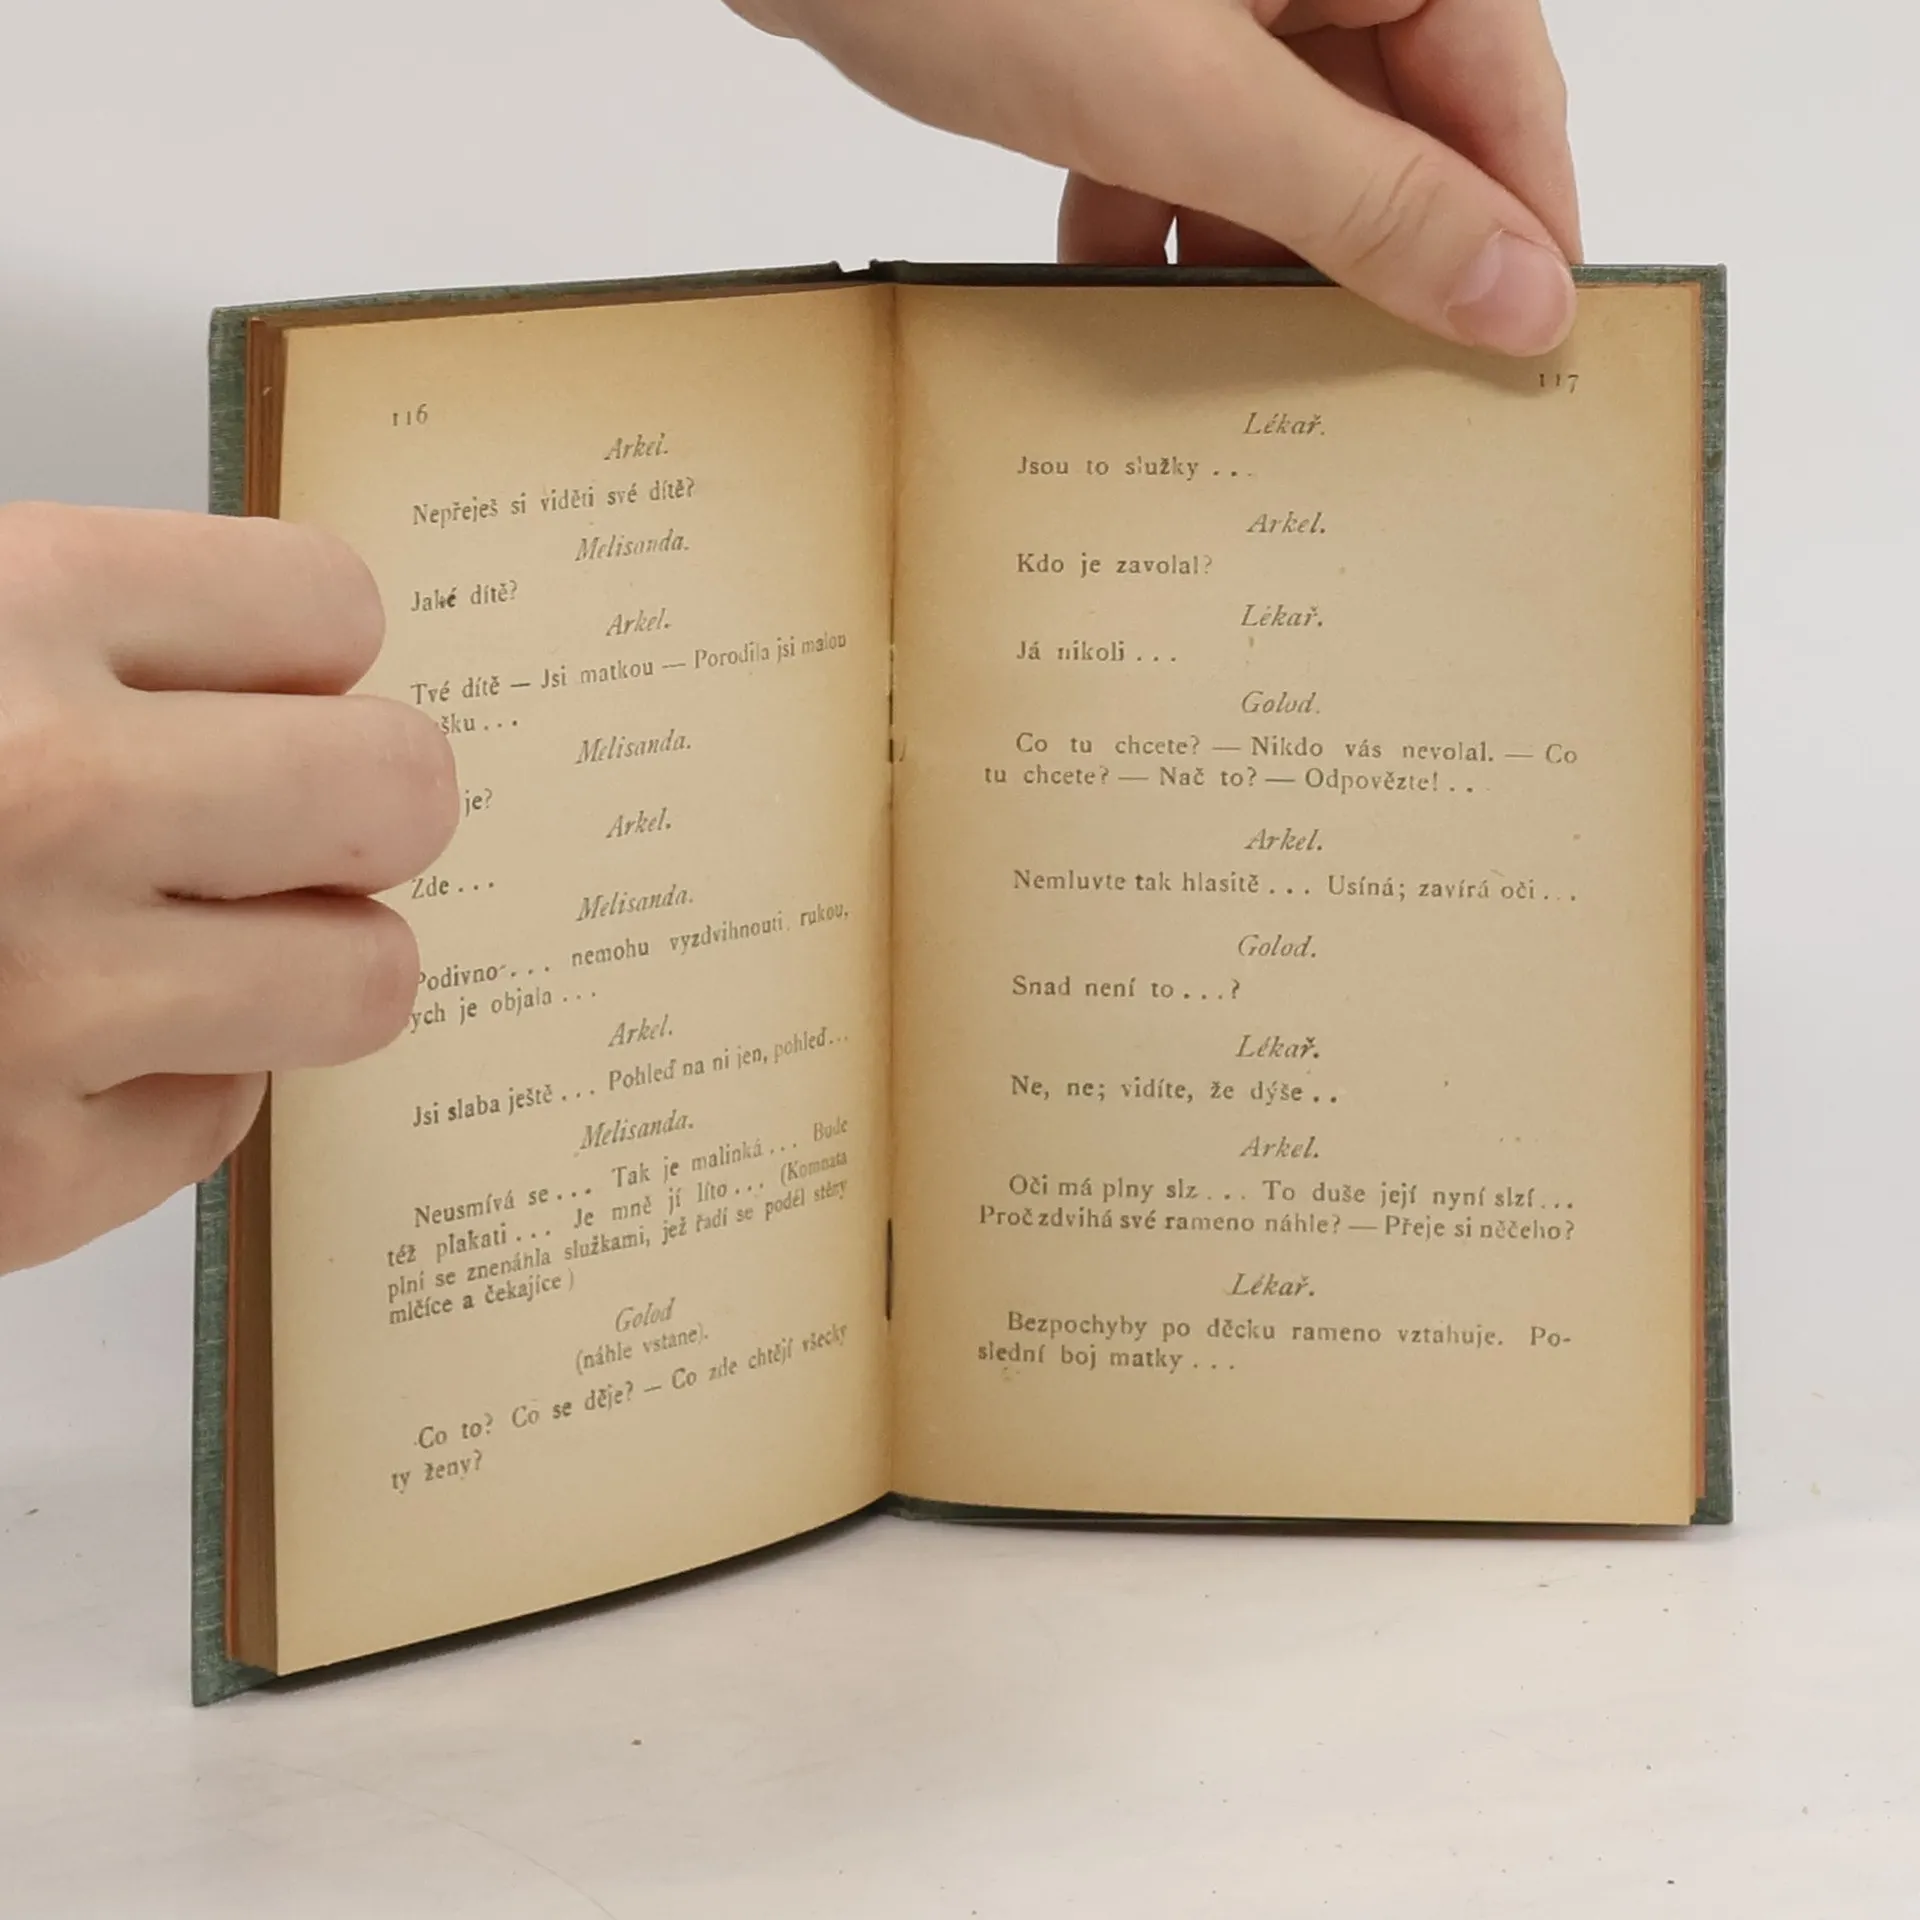 116
Arkel.
Nepřeješ si viděti své dítě?
Melisanda.
Jaké dítě?
Arkel.
Tvé dítě — Jsi matkou — Porodila jsi malou
šku . . .
Melisanda.
je?
Arkel.
Zde . . .
Melisanda.
Podivno . . . nemohu vyzdvihnouti rukou,
ych je objala . . .
Arkel.
Jsi slaba ještě . . . Pohleď na ni jen, pohleď...
Melisanda.
Neusmívá se... Tak je malinká... Bude
též plakati... Je mně jí líto... (Komnata
plní se znenáhla služkami, jež řadí se podél stěny
mlčíce a čekajíce)
Golod
(náhle vstane).
Co to? Co se děje? — Co zde chtějí všecky
ty ženy?
117
Lékař.
Jsou to služky . . .
Arkel.
Kdo je zavolal?
Lékař.
Já nikoli . . .
Golod.
Co tu chcete? — Nikdo vás nevolal. — Co
tu chcete? — Nač to? — Odpovězte! . .
Arkel.
Nemluvte tak hlasitě . . . Usíná; zavírá oči . . .
Golod.
Snad není to . . . ?
Lékař.
Ne, ne; vidíte, že dýše . .
Arkel.
Oči má plny slz . . . To duše její nyní slzí...
Proč zdvihá své rameno náhle? — Přeje si něčeho?
Lékař.
Bezpochyby po děcku rameno vztahuje. Po-
slední boj matky . . .